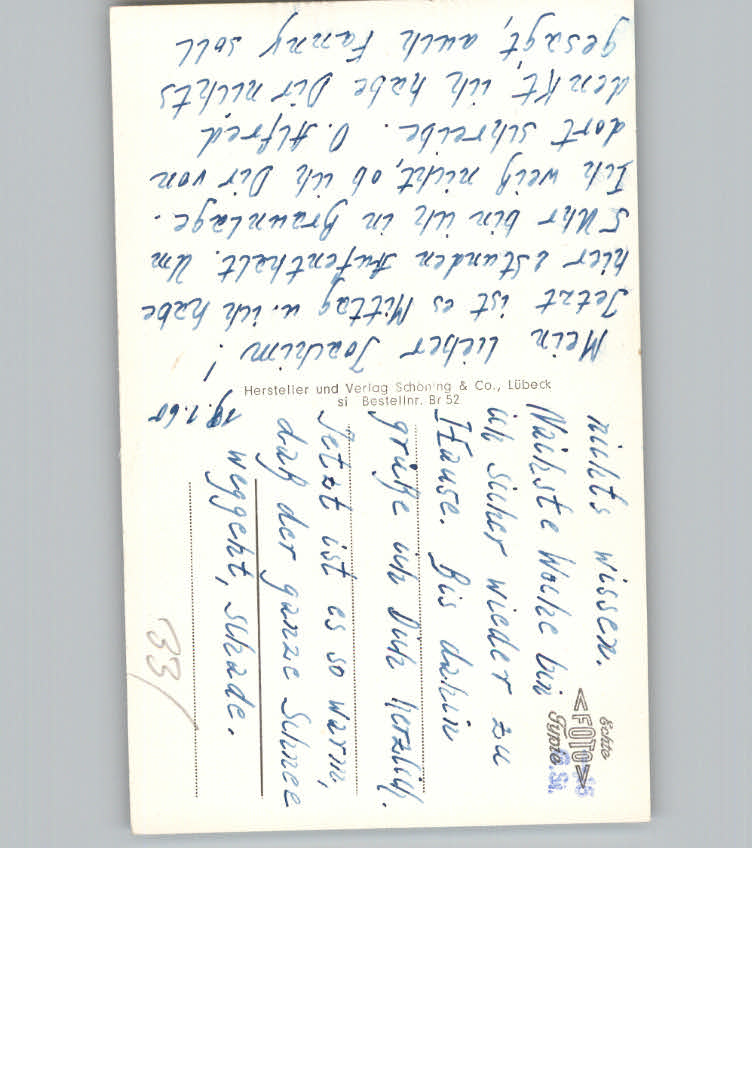 Mein lieber Joachim!
Jetzt ist es Mittag u. ich habe
hier 2 Stunden Aufenthalt. Um
5 Uhr bin ich in Braunlage.
Ich weiß nicht, ob ich Dir von
dort schreibe. O. Alfred
denkt, ich habe Dir nichts
gesagt, auch Fanny soll
nichts wissen.
Nächste Woche bin
ich sicher wieder zu
Hause. Bis dahin
grüße ich Dich herzlich.
Jetzt ist es so warm,
daß der ganze Schnee
weggeht, schade.
19.1.60
Hersteller und Verlag Schöning & Co., Lübeck
si Bestellnr. Br 52
Echte
<FOTO>
Typie
33/